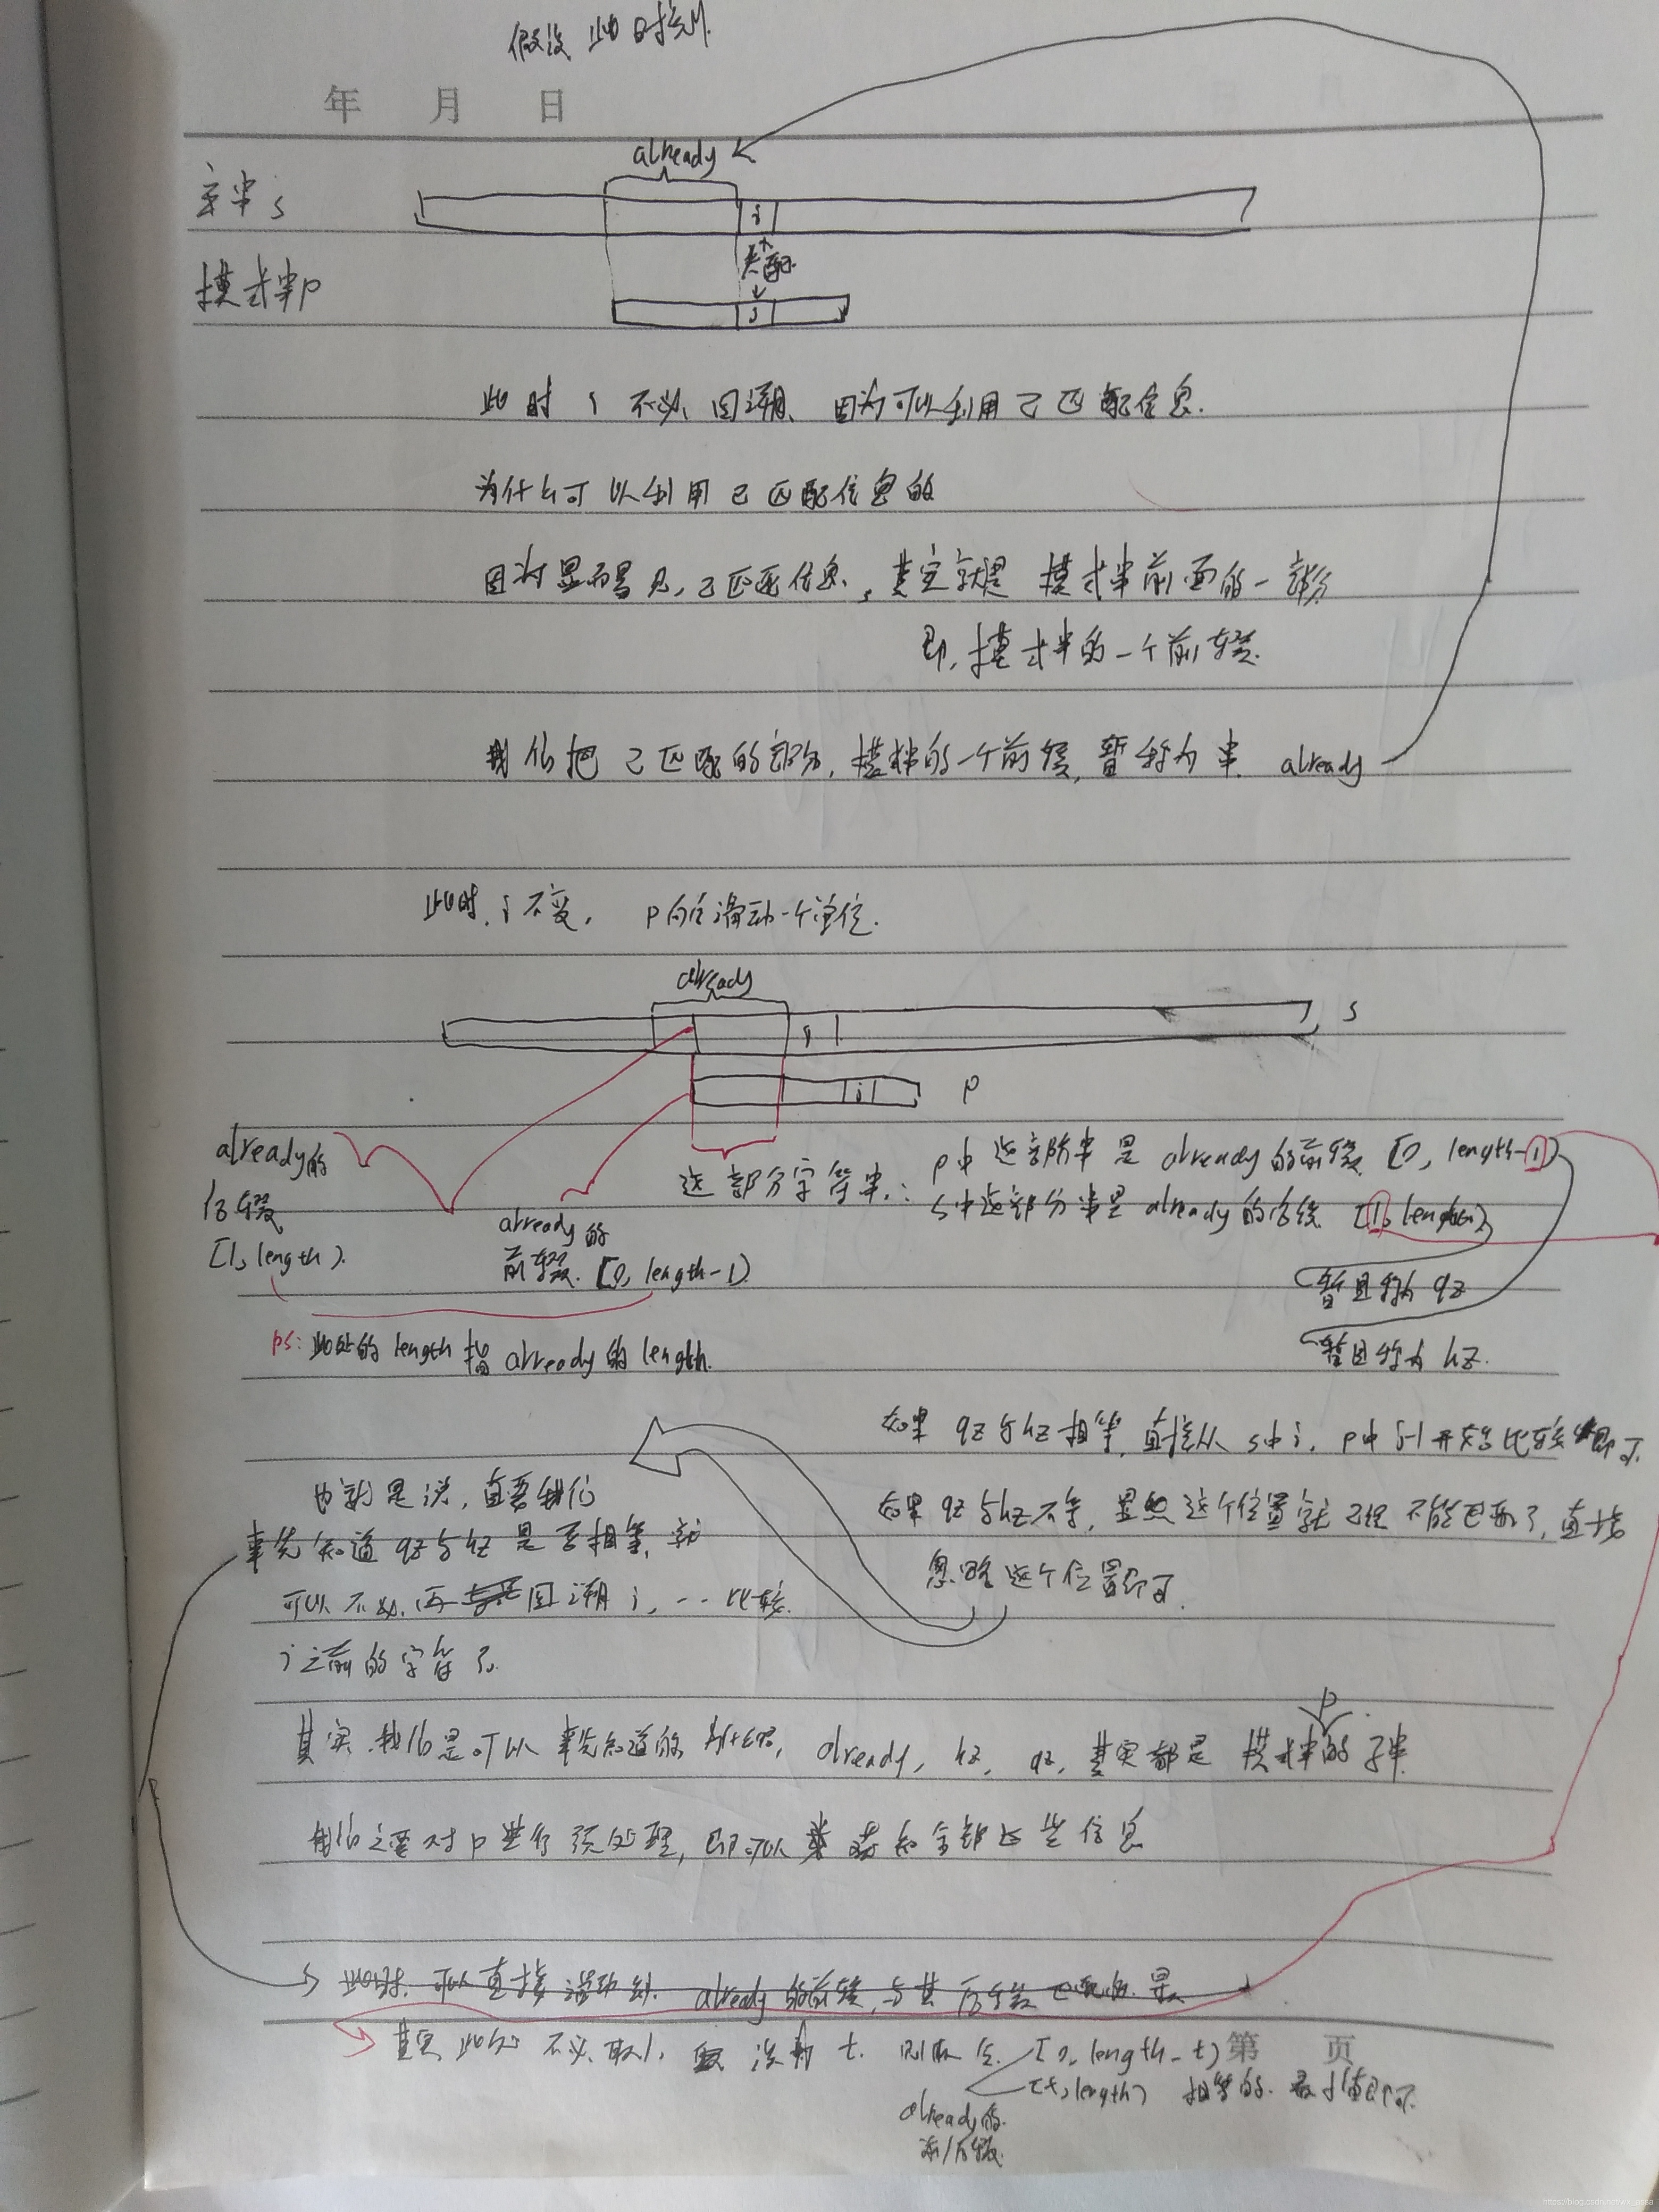 假设此时刻
年 月 日
already
主串s
i
失配
模式串p
j
此时 i 不必回溯、因为可以利用已匹配信息.
为什么可以利用已匹配信息的
因为显而易见,已匹配信息,其实就是 模式串前面的一部分
即,模式串的一个前缀.
我们把已匹配的部分,模式串的一个前缀,暂称为串 already
此时,i不变, p向右滑动一个单位.
already
s
p
already的
后缀
[1, length).
already的
前缀. [0, length-1).
这部分字符串:
p中这部分串是 already的前缀 [0, length-1)
s中这部分串是 already的后缀 [1, length)
暂且称为 qz
暂且称为 hz.
ps: 此处的length指 already的length.
如果 qz与hz相等,直接从 s中i, p中j-1开始比较即可.
如果 qz与hz不等,显然这个位置就已经不能匹配了,直接
忽略这个位置即可.
也就是说,只要我们
事先知道 qz与hz是否相等,就
可以不必再回溯 i, -- 比较
i之前的字符了.
p
其实我们是可以事先知道的, already, hz, qz, 其实都是 模式串的子串.
我们只要对p进行预处理,即可以获知全部这些信息
此时,可以直接滑动到 already的前缀,与其后缀匹配的最
其实此处不必取1, 设为 t. 则取 [0, length-t) 第 页
[t, length) 相等的. 最小值即可.
already的
前/后缀.
https://blog.csdn.net/